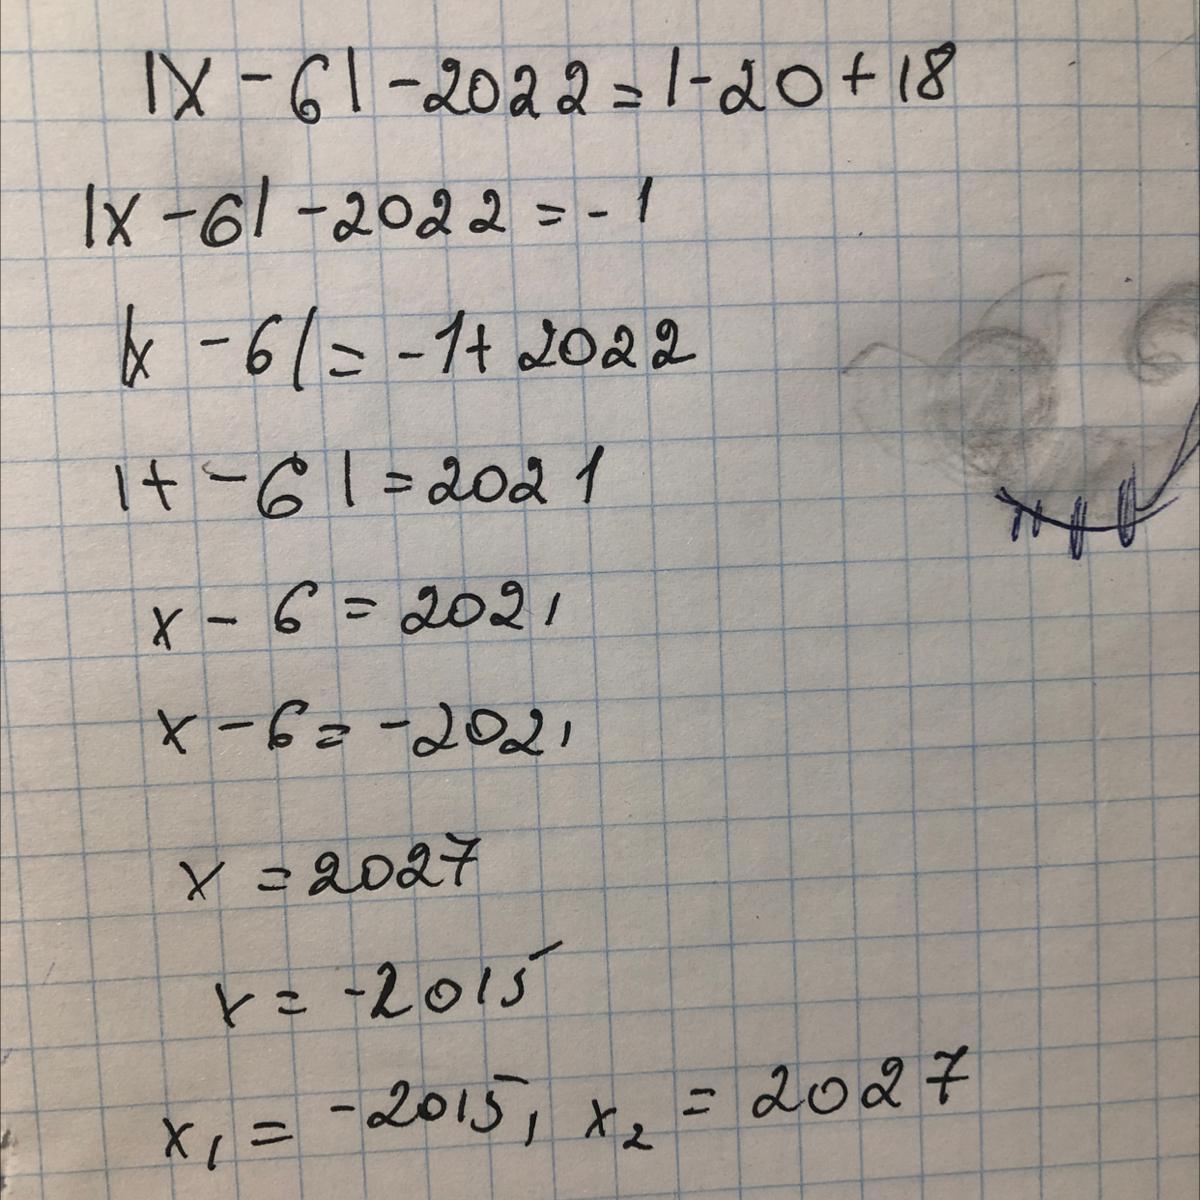 |x - 6| - 2022 = 1 - 20 + 18
|x - 6| - 2022 = - 1
|x - 6| = - 1 + 2022
|+ - 6| = 2021
x - 6 = 2021
x - 6 = - 2021
x = 2027
x = -2015
x₁ = -2015, x₂ = 2027